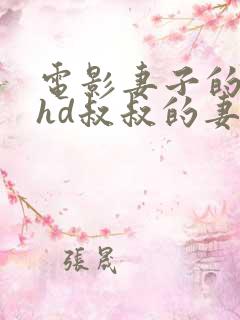 電影妻子的
hd叔叔的妻
張晟